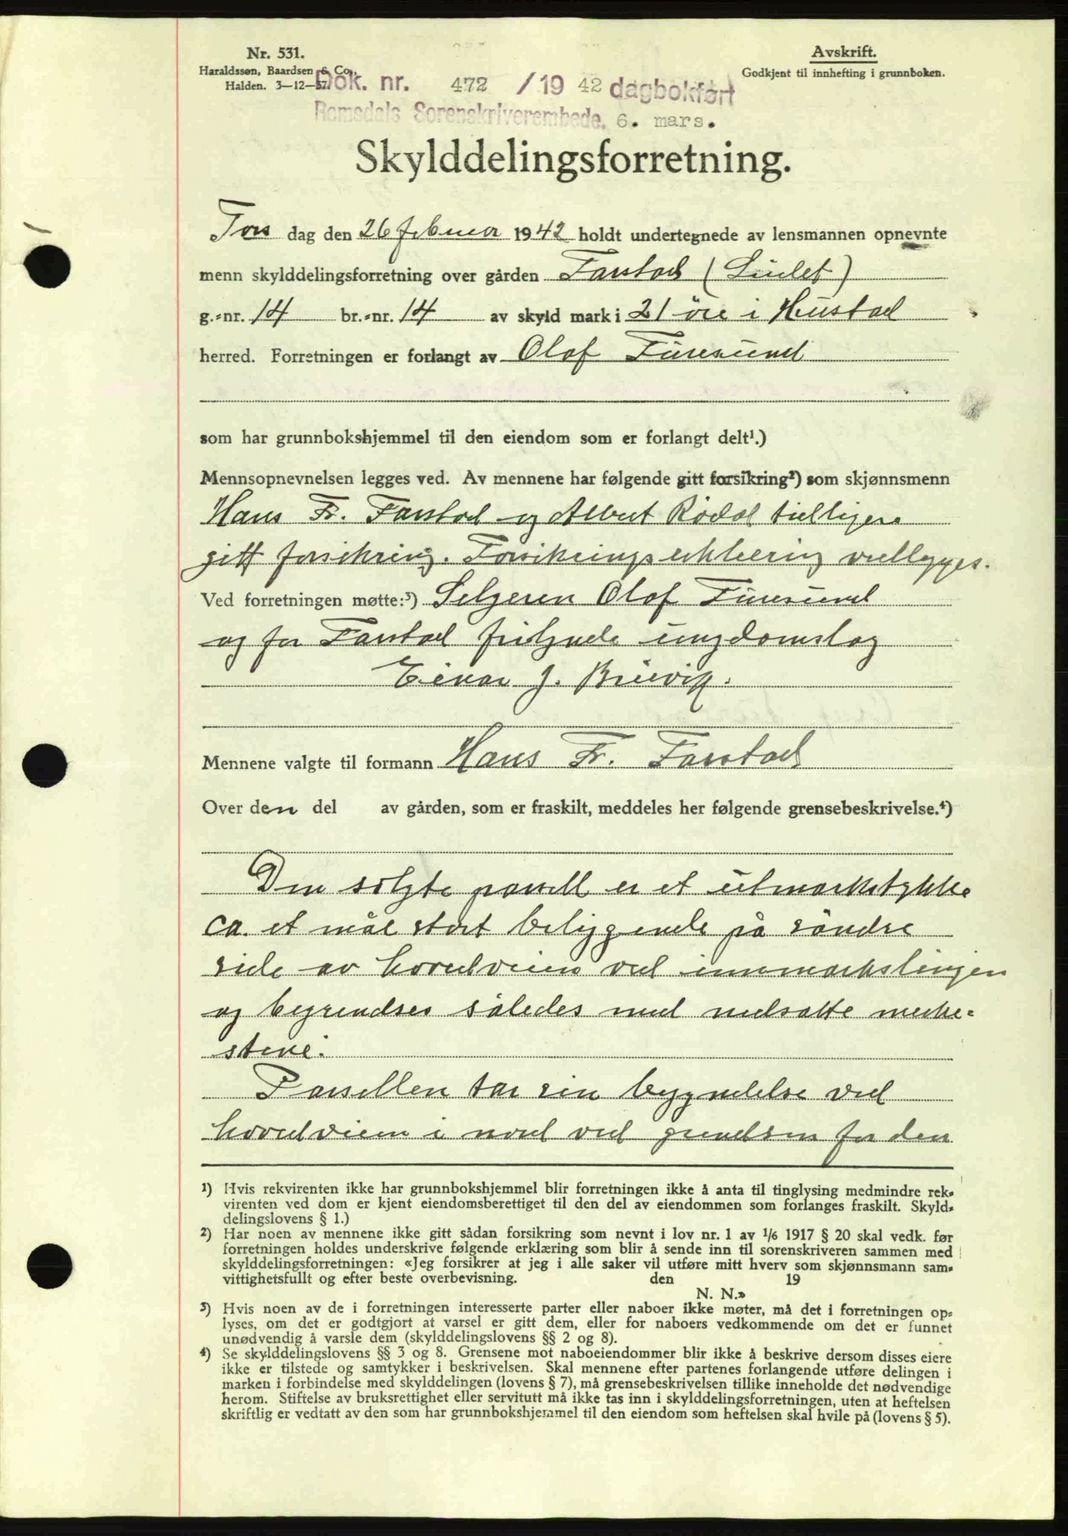 Nr. 531.
Haraldssøn, Baardsen & Co.,
Halden. 3—12—37.
Avskrift.
Godkjent til innhefting i grunnboken.
Dok. nr. 472 /19 42 dagbokført
Romsdals Sorenskriverembede. 6. mars.
Skylddelingsforretning.
Tors dag den 26 februar 1942 holdt undertegnede av lensmannen opnevnte
menn skylddelingsforretning over gården Farstad (
g.-nr. 14 br.-nr. 14 av skyld mark i 21 öre i Hustad
herred. Forretningen er forlangt av Olaf Furesund
som har grunnbokshjemmel til den eiendom som er forlangt delt¹.)
Mennsopnevnelsen legges ved. Av mennene har følgende gitt forsikring²) som skjønnsmenn
Hans Fr. Farstad og Albert Rödal tidligere
gitt forsikring. Forsikringserklæring vedlegges.
Ved forretningen møtte:³) Selgeren Olaf Furesund
og for Farstad frilynde ungdomslag
Einar J. Breivik.
Mennene valgte til formann Hans Fr. Farstad
Over den del av gården, som er fraskilt, meddeles her følgende grensebeskrivelse.⁴)
Den solgte parsell er et utmarkstykke
ca. et mål stort beliggende på söndre
side av hovedveien ved innmarkslinjen
og begrendses således med nedsatte merke-
stene:
Parsellen tar sin begyndelse ved
hovedveien i nord ved grendsen for den
¹) Hvis rekvirenten ikke har grunnbokshjemmel blir forretningen ikke å anta til tinglysing medmindre rek-
virenten ved dom er kjent eiendomsberettiget til den del av eiendommen som forlanges fraskilt. Skyld-
delingslovens § 1.)
²) Har noen av mennene ikke gitt sådan forsikring som nevnt i lov nr. 1 av 1/6 1917 § 20 skal vedk. før
forretningen holdes underskrive følgende erklæring som blir å sende inn til sorenskriveren sammen med
skylddelingsforretningen: «Jeg forsikrer at jeg i alle saker vil utføre mitt hverv som skjønnsmann sam-
vittighetsfullt og efter beste overbevisning. den 19
N. N.»
³) Hvis noen av de i forretningen interesserte parter eller naboer ikke møter, må det i forretningen op-
lyses, om det er godtgjort at varsel er gitt dem, eller for naboers vedkommende om det er funnet
unødvendig å varsle dem (skylddelingslovens §§ 2 og 8).
⁴) Se skylddelingslovens §§ 3 og 8. Grensene mot naboeiendommer blir ikke å beskrive dersom disses eiere
ikke er tilstede og samtykker i beskrivelsen. Skal mennene efter partenes forlangende utføre delingen i
marken i forbindelse med skylddelingen (lovens § 7), må grensebeskrivelsen tillike inneholde det nødvendige
herom. Stiftelse av bruksrettighet eller servitutt må ikke tas inn i skylddelingsforretningen, uten at heftelsen
skriftlig er vedtatt av den som har grunnbokshjemmel til den eiendom som heftelsen skal hvile på (lovens § 5).